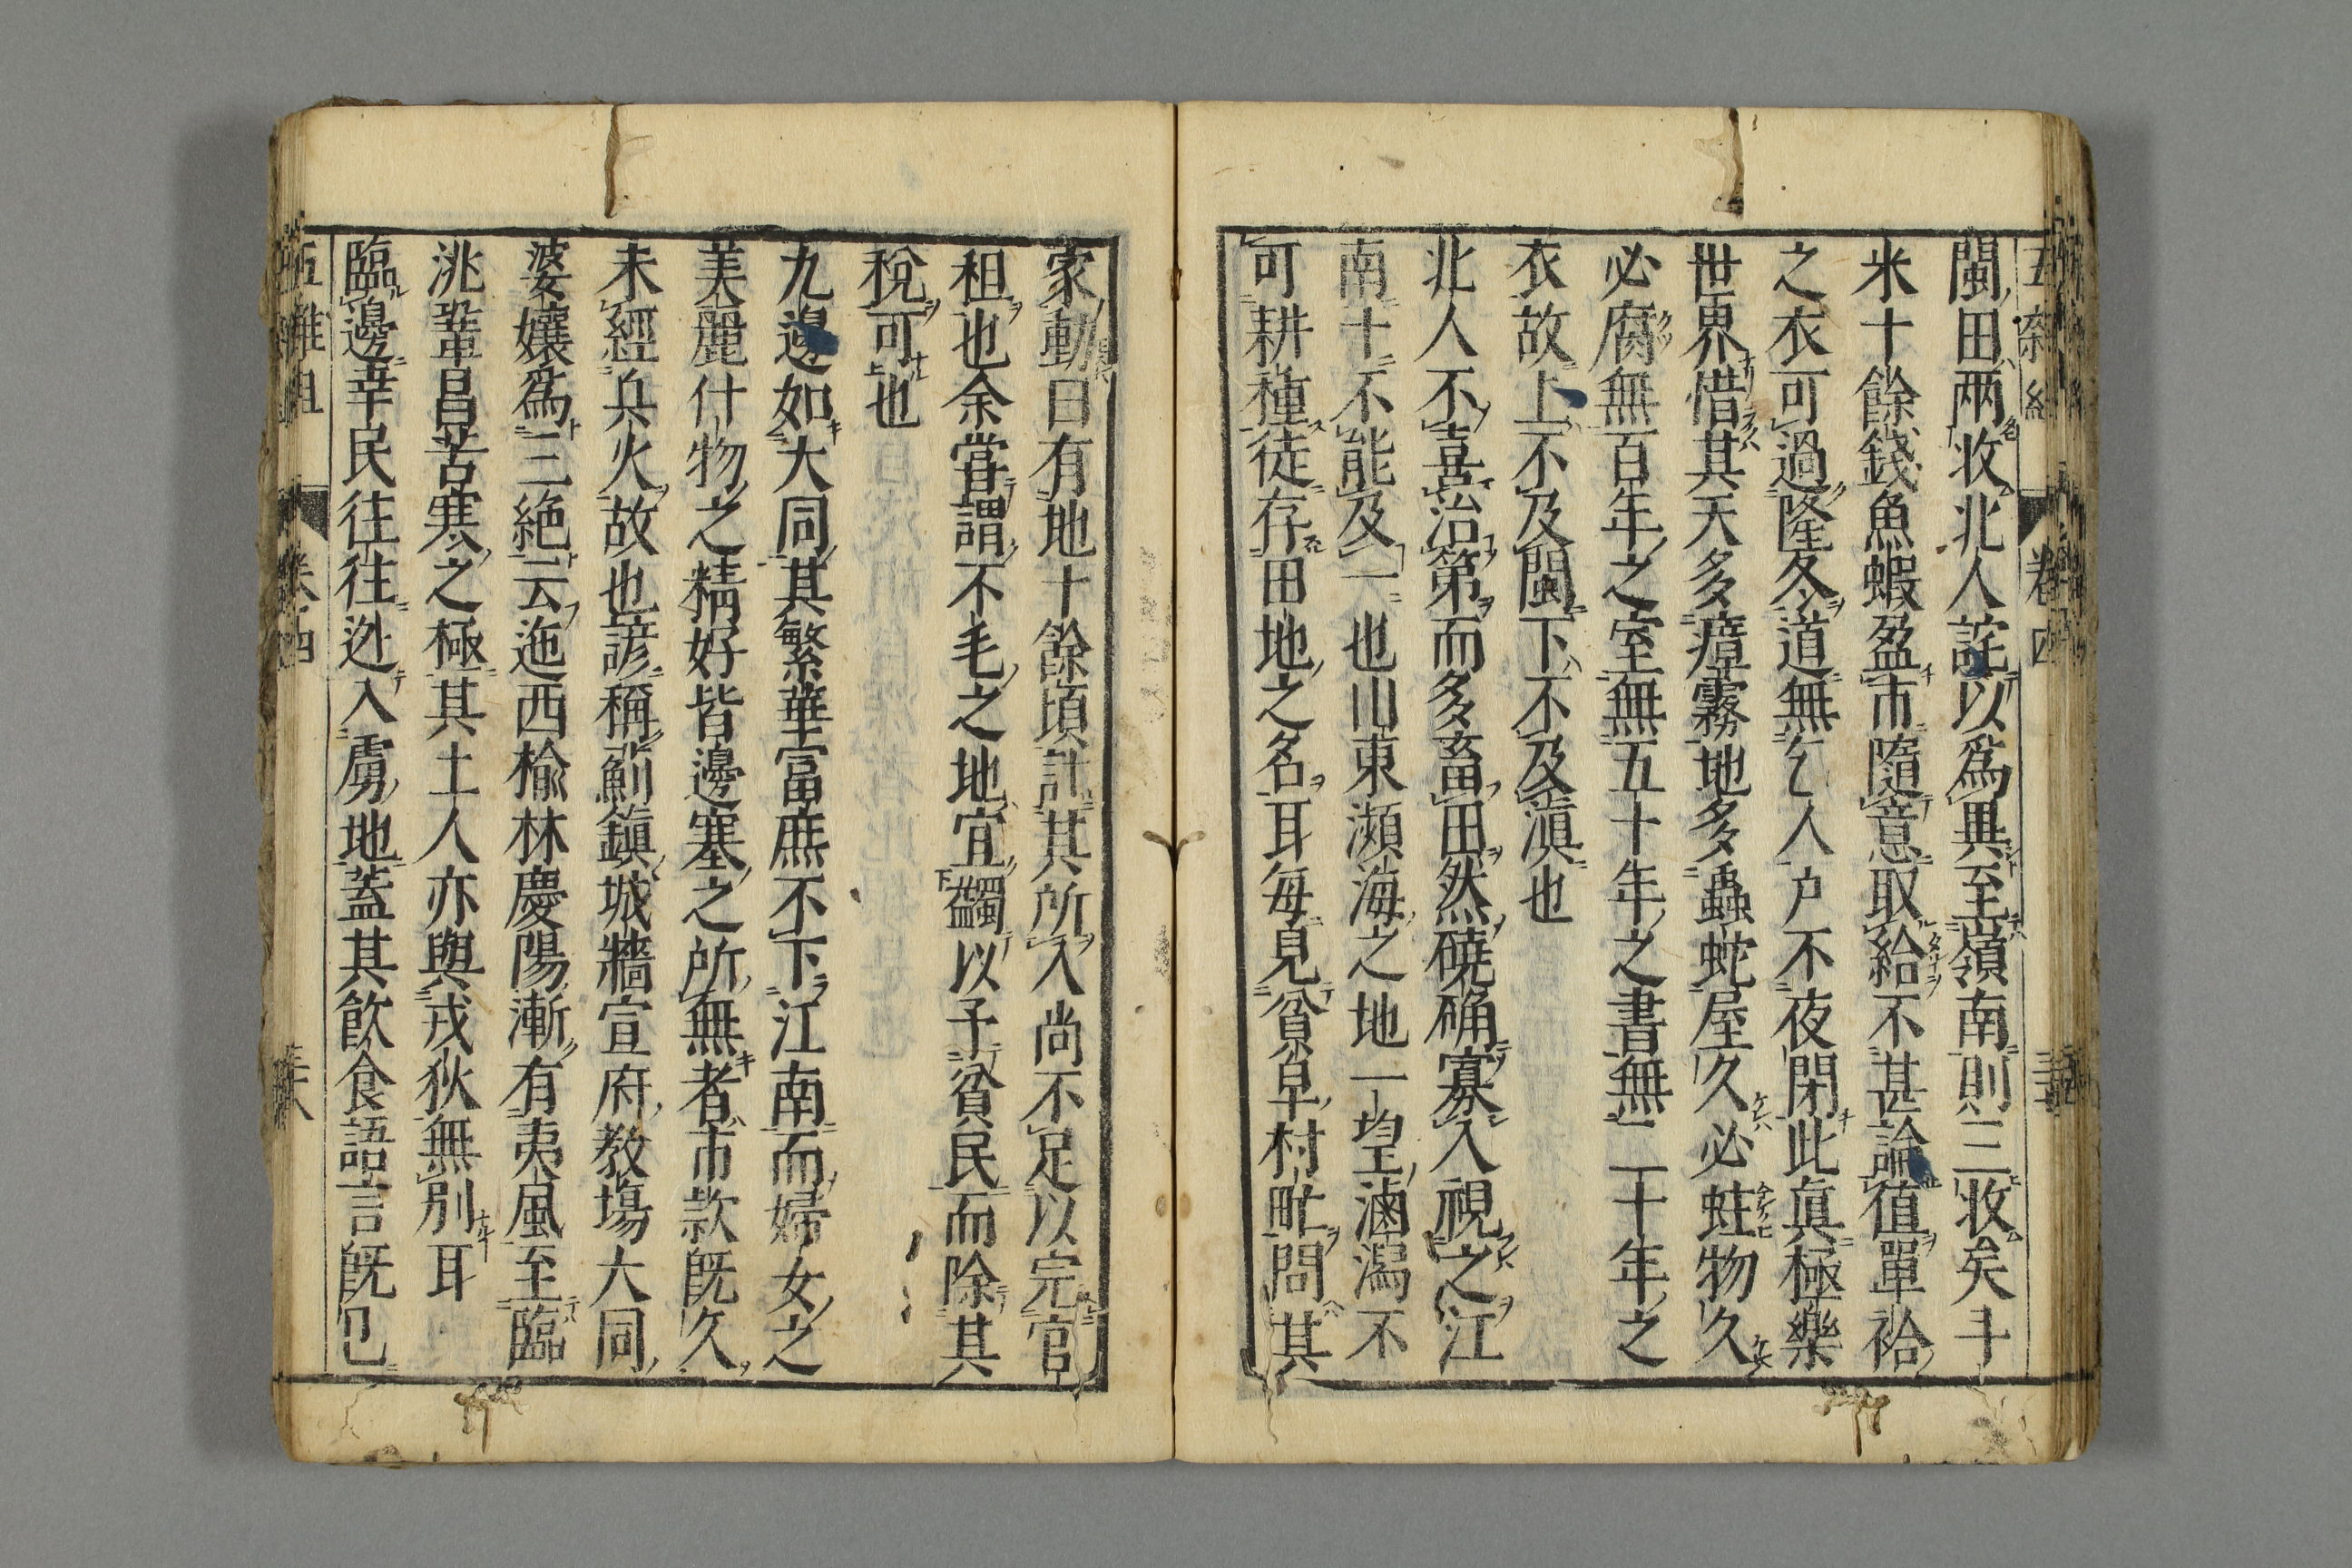 閩田两收北人詫以爲異至嶺南則三收矣斗
米十餘錢魚蝦盈市隨意取給不甚論值單袷
之衣可過隆冬道無乞人戸不夜閉此眞極樂
世界惜其天多瘴霧地多蟲蛇屋久必蛀物久
必腐無百年之室無五十年之書無二十年之
衣故上不及閩下不及滇也
北人不喜治第而多畜田然磽确寡入視之江
南十不能及一也山東瀕海之地一望滷潟不
可耕種徒存田地之名耳每見貧皁村甿問其
家動曰有地十餘頃計其所入尚不足以完官
租也余嘗謂不毛之地宜蠲以予貧民而除其
稅可也
九邊如大同其繁華富庶不下江南而婦女之
美麗什物之精好皆邊塞之所無者市款既久
未經兵火故也諺稱薊鎭城牆宣府教塲大同
婆孃爲三絶云迤西榆林慶陽漸有夷風至臨
洮鞏昌苦寒之極其土人亦與戎狄無別耳
臨邊幸民往往迯入虜地蓋其飮食語言旣已
五雜俎 卷四